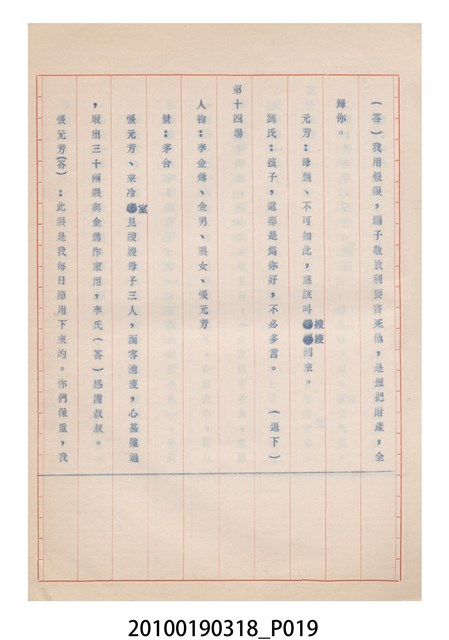 (答)我用假銀,團子教放利要害死他,是想把財產,全
歸你。
元芳:母親、不可如此,應該叫嫂嫂回來。
劉氏:孩子,這都是為你好,不必多言。 (退下)
第十四場
人物:李金蟬、金男、銀女、張元芳
景:茅舍
張元芳、來冷室見嫂嫂母子三人,面容消瘦,心甚難過
,取出三十兩銀與金為作家用,李氏(答)感謝叔叔。
張元芳(答):此銀是我每日節用下來的。你們保重,我
20100190318_P019